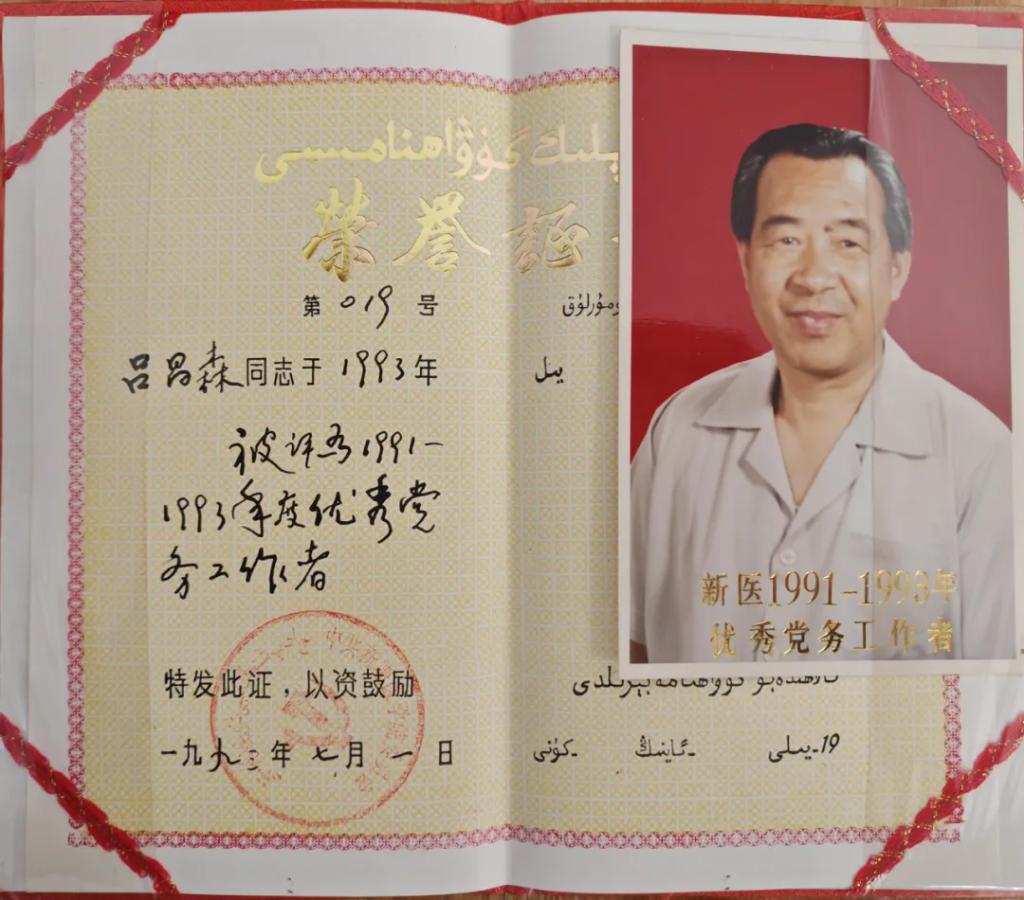 پلىك گۇۋاھنامىسى
荣誉证
第019号
نومۇرلۇق
吕昌森同志于1993年
يىل
被评为1991-
1993年度优秀党
务工作者
新医1991-1993年
优秀党务工作者
特发此证，以资鼓励
一九九三年七月一日
19-يىلى -ئاينىڭ -كۈنى